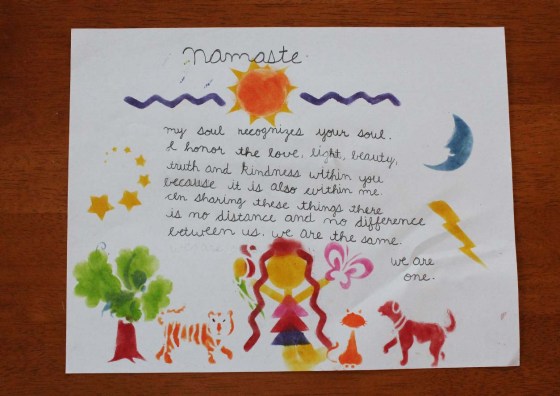 namaste.
my soul recognizes your soul.
I honor the love, light, beauty,
truth and kindness within you
because it is also within me.
in sharing these things there
is no distance and no difference
between us. we are the same.
we are
one.